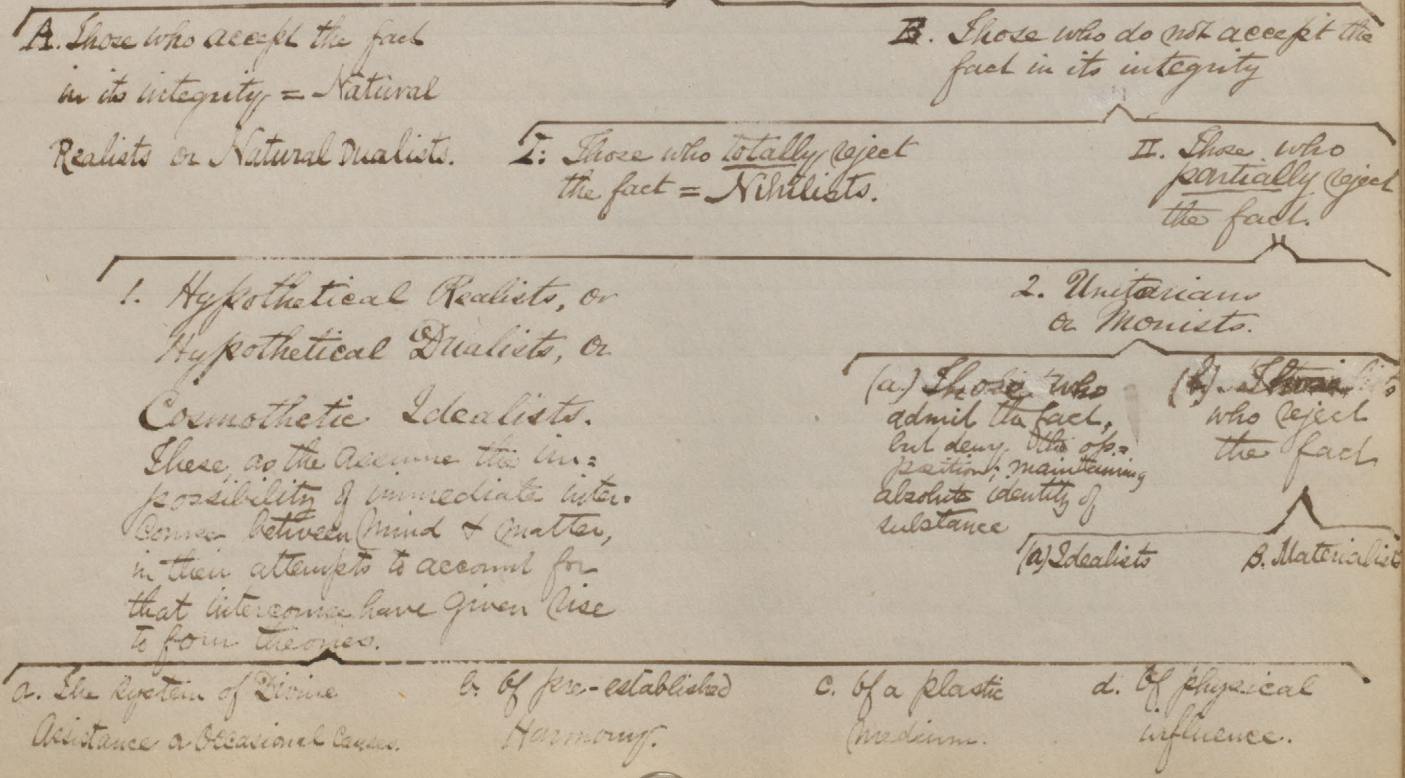 A. Those who accept the fact
in its integrity = Natural
Realists or Natural Dualists.
B. Those who do not accept the
fact in its integrity
I: Those who totally reject
the fact = Nihilists.
II. Those who
partially reject
the fact.
1. Hypothetical Realists, or
Hypothetical Dualists, or
Cosmothetic Idealists.
These, as the assume the im=
possibility of immediate inter-
course between Mind & Matter,
in their attempts to account for
that intercourse have given rise
to four theories.
2. Unitarians
or Monists.
(a.) Those who
admit the fact,
but deny the op=
position; maintaining
absolute identity of
substance
(b).
who reject
the fact
(a) Idealists
B. Materialists
a. The System of Divine
Assistance or Occasional Causes.
b. Of pre-established
Harmony.
c. Of a plastic
medium.
d. Of physical
influence.